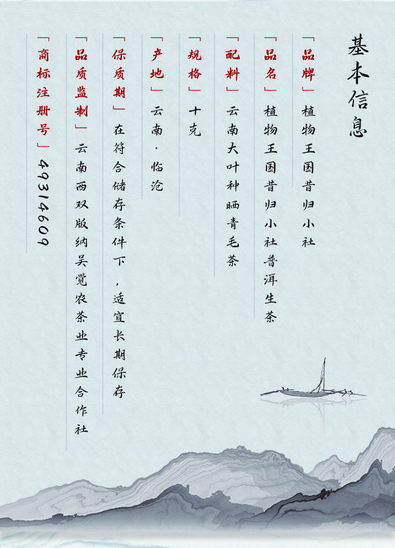 基本信息
「品牌」植物王国昔归小社
「品名」植物王国昔归小社普洱生茶
「配料」云南大叶种晒青毛茶
「规格」十克
「产地」云南·临沧
「保质期」在符合储存条件下,适宜长期保存
「品质监制」云南西双版纳吴觉农茶业专业合作社
「商标注册号」49314609